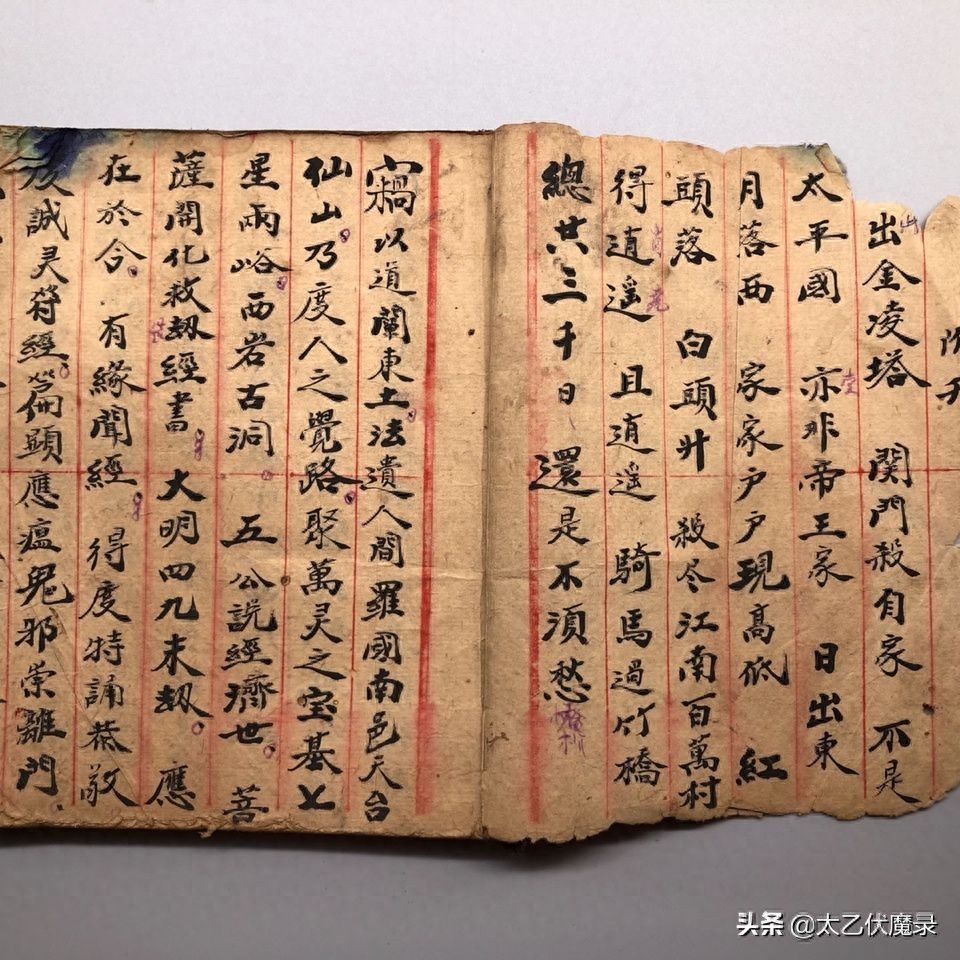 出金凌塔 関門殺自家 不是
太平國 亦非帝王家 日出東
月落西 家家户户現高低 紅
頭落 白頭升 殺尽江南百萬村
得逍遥 且逍遥 騎馬過竹橋
總共三千日 還是不須愁
窩以道蘭東土法遺人間羅國南邑天台
仙山乃度人之覺路聚萬灵之宝基七
星兩峪西岩古洞 五公説經濟世 菩
薩開化救刼經書 大明四九末刼 應
在於今 有緣聞經 得度特誦恭敬
誠灵符經篇顯應瘟鬼邪祟離門
头条 @太乙伏魔录